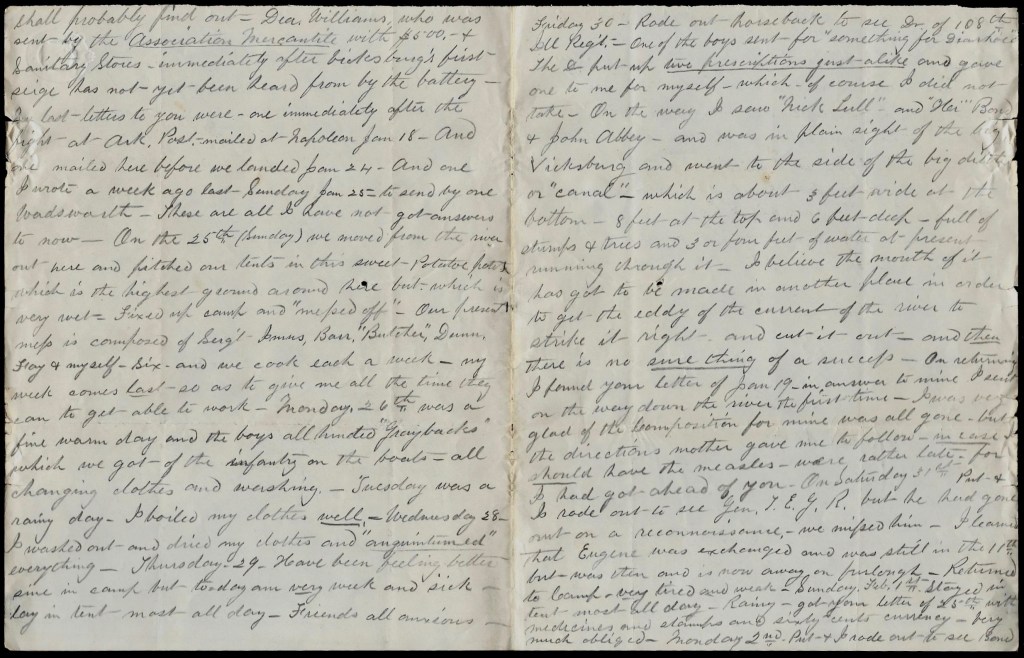 shall probably find out - Dea. Williams, who was
sent by the Association Mercantile with $500. - &
Sanitary Stores - immediately after Vicksburg's first
seige has not yet been heard from by the battery -
last letters to you were - one immediately after the
fight at Ark. Post. - mailed at Napoleon Jan 18 - And
one mailed here before we landed Jan 24 - And one
I wrote a week ago last Sunday Jan 25th to send by one
Wadsworth - These are all I have not got answers
to now - On the 25th (Sunday) we moved from the river
out here and pitched our tents in this sweet Potatoe
which is the highest ground around here but which is
very wet - Fixed up camp and "messed off" - Our present
mess is composed of Serg't Barr, "Butcher", Dunn,
& myself - Six - and we cook each a week - my
week comes last so as to give me all the time they
can to get able to work - Monday, 26th was a
fine warm day and the boys all hunted "Graybacks"
which we got of the infantry on the boats - all
changing clothes and washing. - Tuesday was a
rainy day - I boiled my clothes well, - Wednesday 28 -
I washed out and dried my clothes and "anguintumed"
everything - Thursday - 29 - Have been feeling better
since in camp but to-day am very weak and sick -
lay in tent most all day - Friends all anxious -
Friday 30 - Rode out horseback to see Dr. of 108th
Ill Reg't, - One of the boys sent for "something for Diarhoea"
The Dr put up two prescriptions just alike and gave
one to me for myself - which of course I did not
take - On the way I saw "Nick Lull" and Bond
& John Abbey - and was in plain sight of the
Vicksburg and went to the side of the big ditch
or "canal" - which is about 3 feet wide at the
bottom - 8 feet at the top and 6 feet deep - full of
stumps & trees and 3 or four feet of water at present
running through it - I believe the mouth of it
has got to be made in another place in order
to get the eddy of the current of the river to
strike it right and cut it out - and then
there is no sure thing of a success - On returning
I found your letter of Jan 19 - in answer to mine I sent
on the way down the river the first time - I was very
glad of the Composition for mine was all gone - but
the directions mother gave me to follow - in case I
should have the measles - were, rather late - for
I had got ahead of you - On Saturday 31st Put - &
I rode out to see Gen, T. E. G. R. but he had gone
out on a reconnoissance, - we missed him - I learned
that Eugene was exchanged and was still in the 11th
but was then and is now away on furlough - Returned
to Camp - very tired and weak - Sunday, Feb. 1st - Stayed in
tent most all day - Rainy - got your letter of 25th with
medicines and stamps and sixty cents currency - very
much obliged - Monday 2nd. Put - & I rode out to see Bond